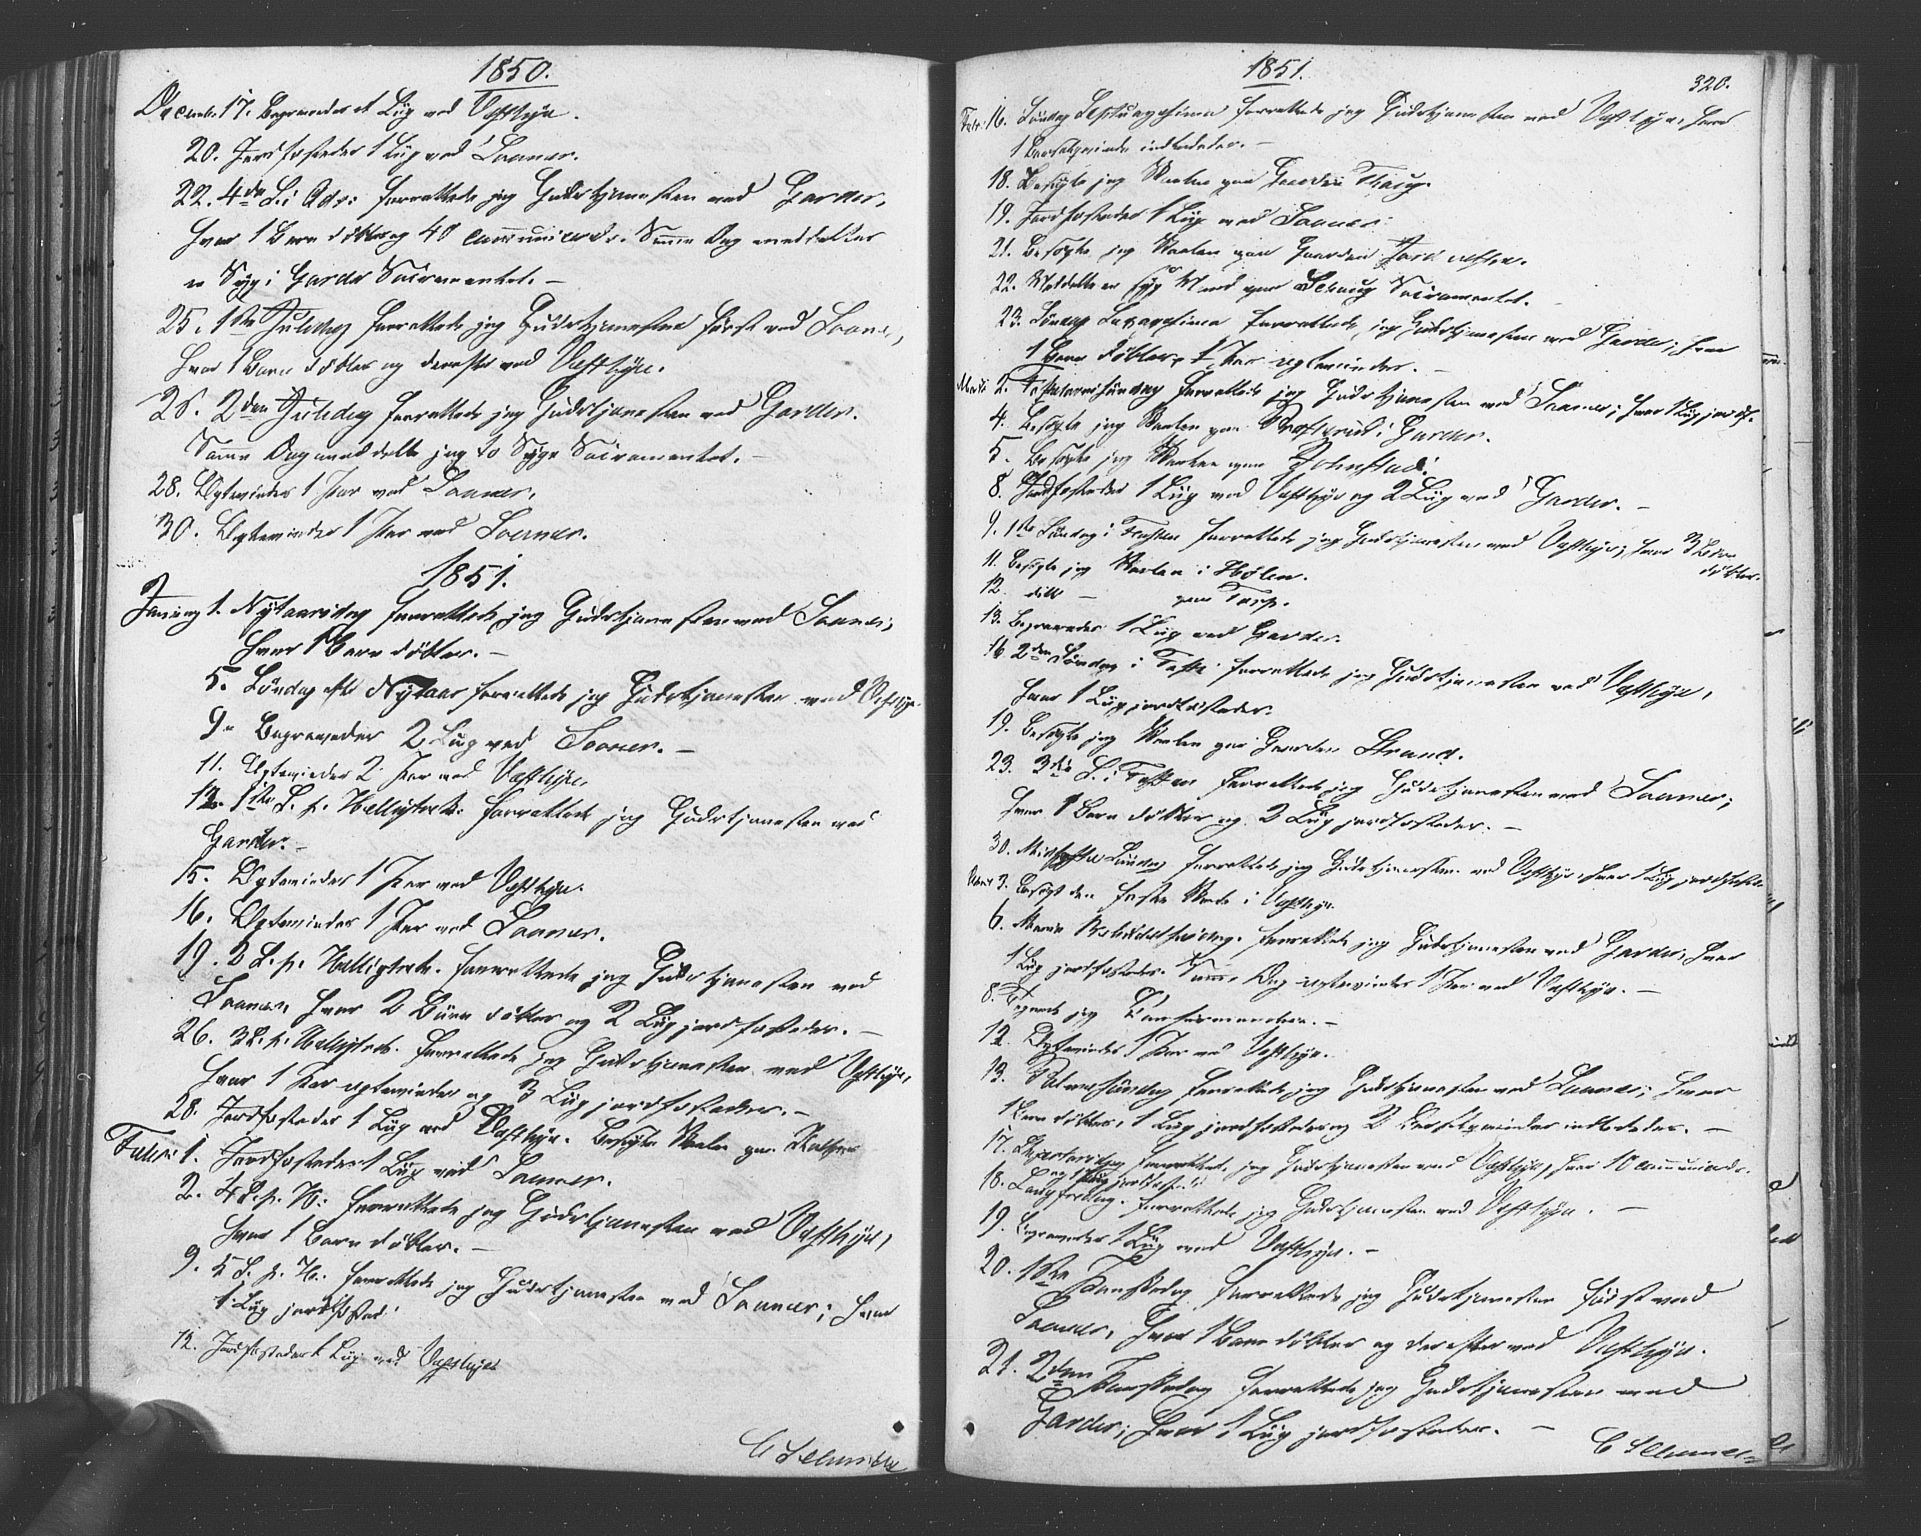 1850.
December 17. Begravedes et Liig ved Vestbye.
20. Jordfæstedes 1 Liig ved Saaner.
22. 4de S. i Adv: forrettede jeg Gudstjenesten ved Garder,
hvor 1 Barn døbtes og 40 communicerede. Samme Dag meddeeltes
en Syg i Garder Sacramentet. —
25. 1ste Juledag forrettede jeg Gudstjenesten først ved Saaner,
hvor 1 Barn døbtes og derefter ved Vestbye.
26. 2den Juledag forrettede jeg Gudstjenesten ved Garder.
Samme Dag meddelte jeg to Syge Sacramentet. —
28. Egteviedes 1 Par ved Saaner.
30. Egteviedes 1 Par ved Saaner.
1851.
Januar 1. Nytaarsdag forrettede jeg Gudstjenesten ved Saaner,
hvor 1 Barn døbtes. —
5. Søndag efter Nytaar forrettede jeg Gudstjenesten ved Vestbye.
9. Begravedes 2 Liig ved Saaner. —
11. Egteviedes 2 Par ved Vestbye.
12. 1ste S. p. Helligtrek: forrettede jeg Gudstjenesten ved
Garder. —
15. Egteviedes 1 Par ved Vestbye.
16. Egteviedes 1 Par ved Saaner.
19. 2 S. p. Helligtrek. forrettede jeg Gudstjenesten ved
Saaner, hvor 2 Børn døbtes og 2 Liig jordfæstedes. —
26. 3 S. p. Helligtrek. forrettede jeg Gudstjenesten ved Vestbye,
hvor 1 Par egteviedes og 3 Liig jordfæstedes. —
28. Jordfæstedes 1 Liig ved Vestbye. Besøgte Skolen paa
Febr: 1. Jordfæstedes 1 Liig ved Saaner.
2. 4 S. p. H: forrettede jeg Gudstjenesten ved Vestbye,
hvor 1 Barn døbtes. —
9. 5 S. p. H. forrettede jeg Gudstjenesten ved Saaner; hvor
1 Liig jordfæstedes
12. Jordfæstedes 1 Liig ved Vestbye
C Schmidt
1851.
320.
Febr: 16. Søndag Septuagesima forrettede jeg Gudstjenesten ved Vestbye, hvor
1 Barselqvinde indlededes. —
18. Besøgte jeg Skolen paa Gaarden
19. Jordfæstedes 1 Liig ved Saaner.
21. Besøgte jeg Skolen paa Gaarden
22. Meddelte en syg Mand paa Sacramentet. —
23. Søndag Sexagesima forrettede jeg Gudstjenesten ved Garder, hvor
1 Barn døbtes, 1 Par egteviedes. —
Marts 2. Fastelavnssøndag forrettede jeg Gudstjenesten ved Saaner; hvor 1 Liig jordf.
4. Besøgte jeg Skolen paa i Garder.
5. Besøgte jeg Skolen paa
8. Jordfæstedes 1 Liig ved Vestbye og 2 Liig ved Garder. —
9. 1ste Søndag i Fasten forrettede jeg Gudstjenesten ved Vestbye, hvor 3 Børn
døbtes.
11. Besøgte jeg Skolen i Hølen.
12. dito — paa
13. Begravedes 1 Liig ved Garder
16. 2den Søndag i Faste forrettede jeg Gudstjenesten ved Vestbye,
hvor 1 Liig jordfæstedes.
19. Besøgte jeg Skolen paa Gaarden Strand.
23. 3die S. i Fasten forrettede jeg Gudstjenesten ved Saaner;
hvor 1 Barn døbtes og 2 Liig jordfæstedes. —
30. Midfaste Søndag forrettede jeg Gudstjenesten ved Vestbye, hvor 1 Liig jordfæstedes
3. Besøgt den faste Skole i Vestbye
6. Mariæ Bebudelsesdag. forrettede jeg Gudstjenesten ved Garder, hvor
1 Liig jordfæstedes. Samme Dag egteviedes 1 Par ved Vestbye. —
8. jeg Confirmanderne. —
12. Egteviedes 1 Par ved Vestbye.
13. Palmesøndag forrettede jeg Gudstjenesten ved Saaner; hvor
1 Barn døbtes, 1 Liig jordfæstedes og 2 Barselqvinder indlededes. —
17. Skjærtorsdag forrettede jeg Gudstjenesten ved Vestbye, hvor 10 communicerede.
og 1 Liig jordfæstedes
18. Langfredag. forrettede jeg Gudstjenesten ved Vestbye. —
19. Begravedes 1 Liig ved Vestbye. —
20. 1ste Paaskedag forrettede jeg Gudstjenesten først ved
Saaner, hvor 1 Barn døbtes og derefter ved Vestbye.
21. 2den Paaskedag forrettede jeg Gudstjenesten ved
Garder; hvor 1 Liig jordfæstedes. —
C Schmidt